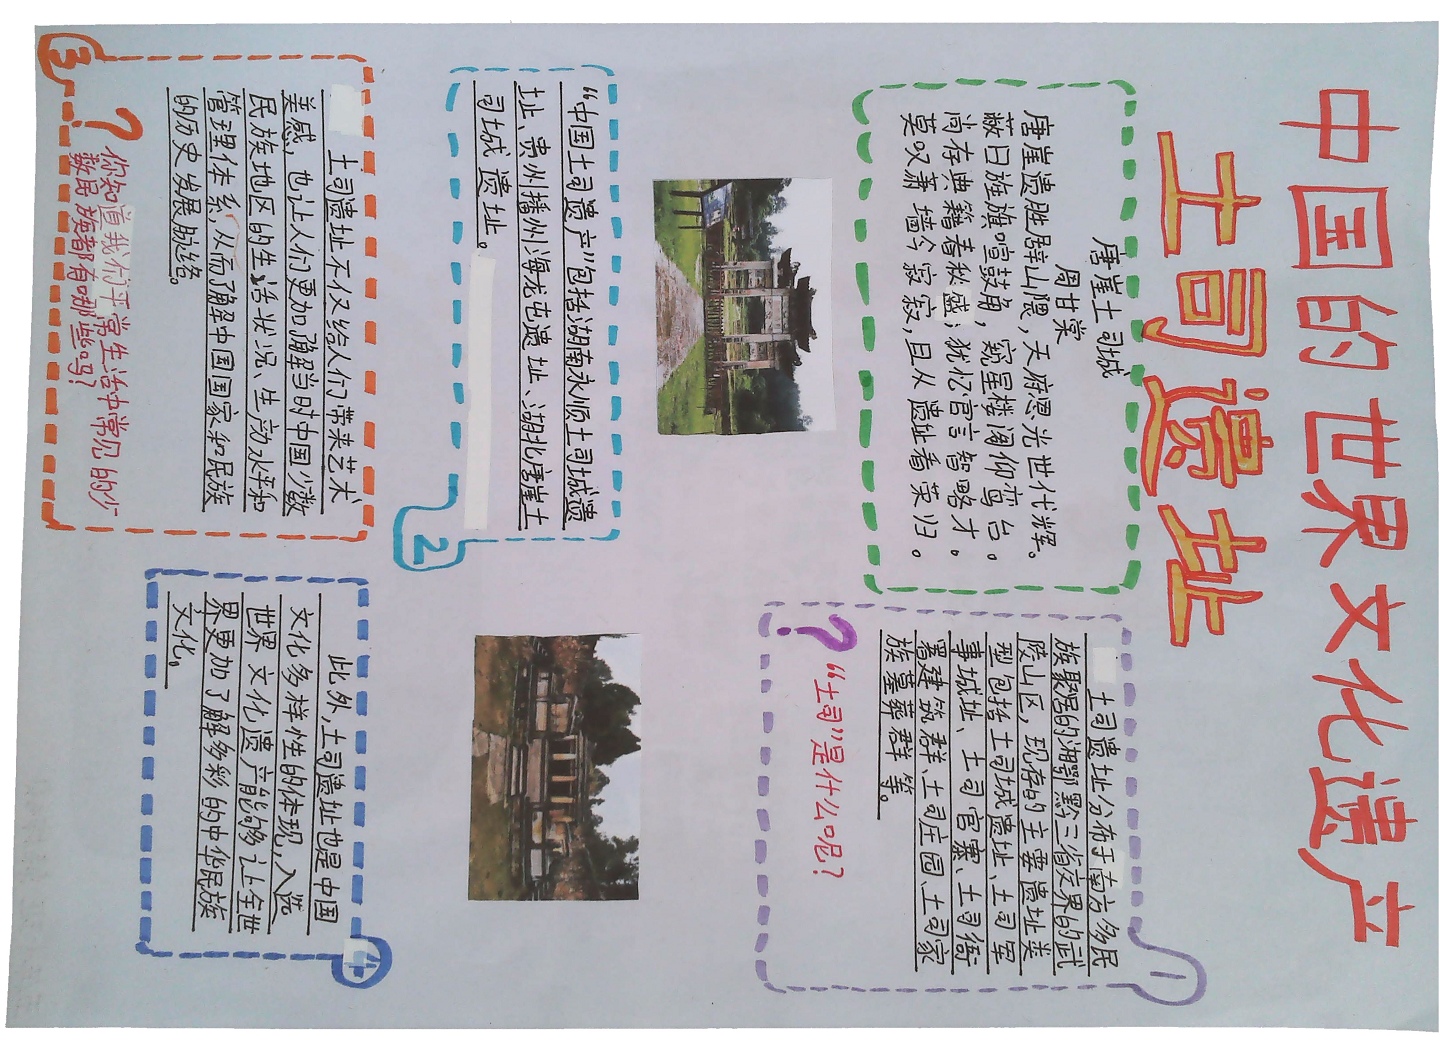 中国的世界文化遗产
土司遗址
唐崖土司城
周甘棠
唐崖遗胜辟山隈,天府恩光世代辉。
蔽日旌旗喧鼓角,窥星楼阁仰鸾台。
尚存典籍春秋盛;犹忆官言智略才。
莫叹萧墙今寂寂,且从遗址看荣归。
1
土司遗址分布于南方多民
族聚居的湘鄂黔三省交界的武
陵山区,现存的主要遗址类
型包括土司城遗址、土司军
事城址、土司官寨、土司衙
署建筑群、土司庄园、土司家
族墓葬群等。
?“土司”是什么呢?
“中国土司遗产”包括湖南永顺土司城遗
址、贵州播州海龙屯遗址、湖北唐崖土
司城遗址。
2
土司遗址不仅给人们带来艺术
美感,也让人们更加了解当时中国少数
民族地区的生活状况、生产水平和
管理体系,从而了解中国国家和民族
的历史发展脉络。
?你知道我们平常生活中常见的少
数民族都有哪些吗?
3
4
此外,土司遗址也是中国
文化多样性的体现,入选
世界文化遗产能够让全世
界更加了解多彩的中华民族
文化。